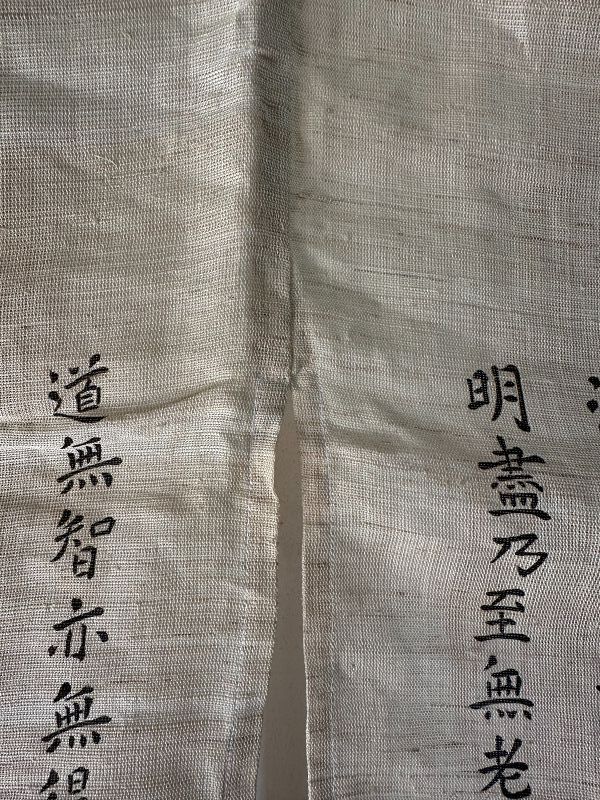 明盡乃至無老
道無智亦無得